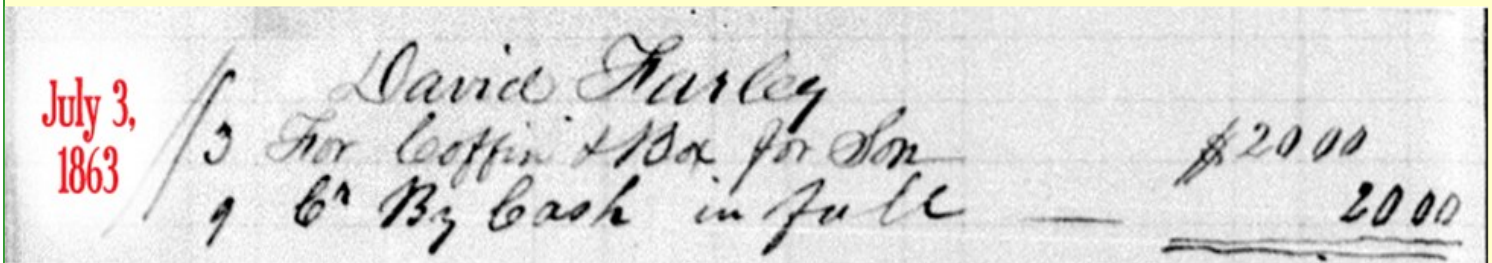 July 3,
1863
David Farley
3 For Coffin & Box for Son $20 00
9 Cr By Cash in full — 20 00